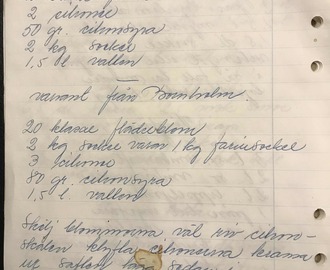 2 citroner
50 gr. citronsyra
2 kg socker
1,5 l vatten
variant från Bornholm.
20 klasar fläderblom
2 kg. socker varav 1 kg farinsocker
3 citroner
80 gr. citronsyra
1,5 l. vatten
Skölj blommorna väl riv citron-
skalen klyfta citronerna krama
ur saften lägg sedan